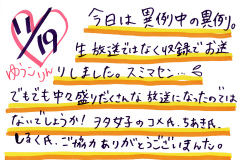 11/19
ゆうこりん
今日は異例中の異例。
生放送ではなく収録でお送
りしました。スミマセン…
でもでも中々盛りだくさんな放送になったのでは
ないでしょうか！ヲタ女子のコメ氏、ちあき氏、
しるく氏、ご協力ありがとうございました。